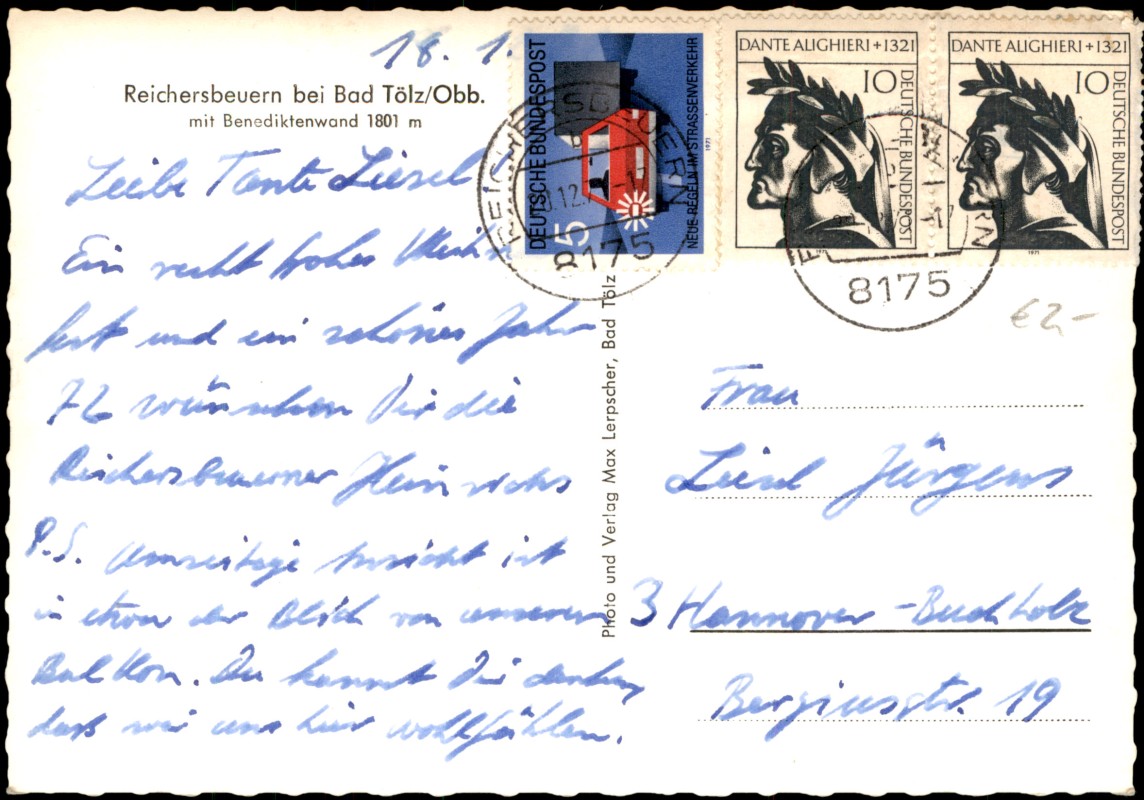 18. 1
Reichersbeuern bei Bad Tölz/Obb.
mit Benediktenwand 1801 m
Liebe Tante Liesel
Ein recht frohes Weihn
fest und ein schönes Jahr
72 wünschen Dir die
Reichersbeuerner Heinrichs
P.S. Umseitige Ansicht ist
in etwa der Blick von unserem
Balkon. Du kannst Dir denken,
daß wir uns hier wohlfühlen.
Photo und Verlag Max Lerpscher, Bad Tölz
DEUTSCHE BUNDESPOST
5
NEUE REGELN IM STRASSENVERKEHR
1971
DANTE ALIGHIERI + 1321
10
DEUTSCHE BUNDESPOST
1971
DANTE ALIGHIERI + 1321
10
DEUTSCHE BUNDESPOST
1971
REICHERSBEUERN
b
8175
8175
€2,-
Frau
Liesel Jürgens
3 Hannover-Buchholz
Bergiusstr. 19